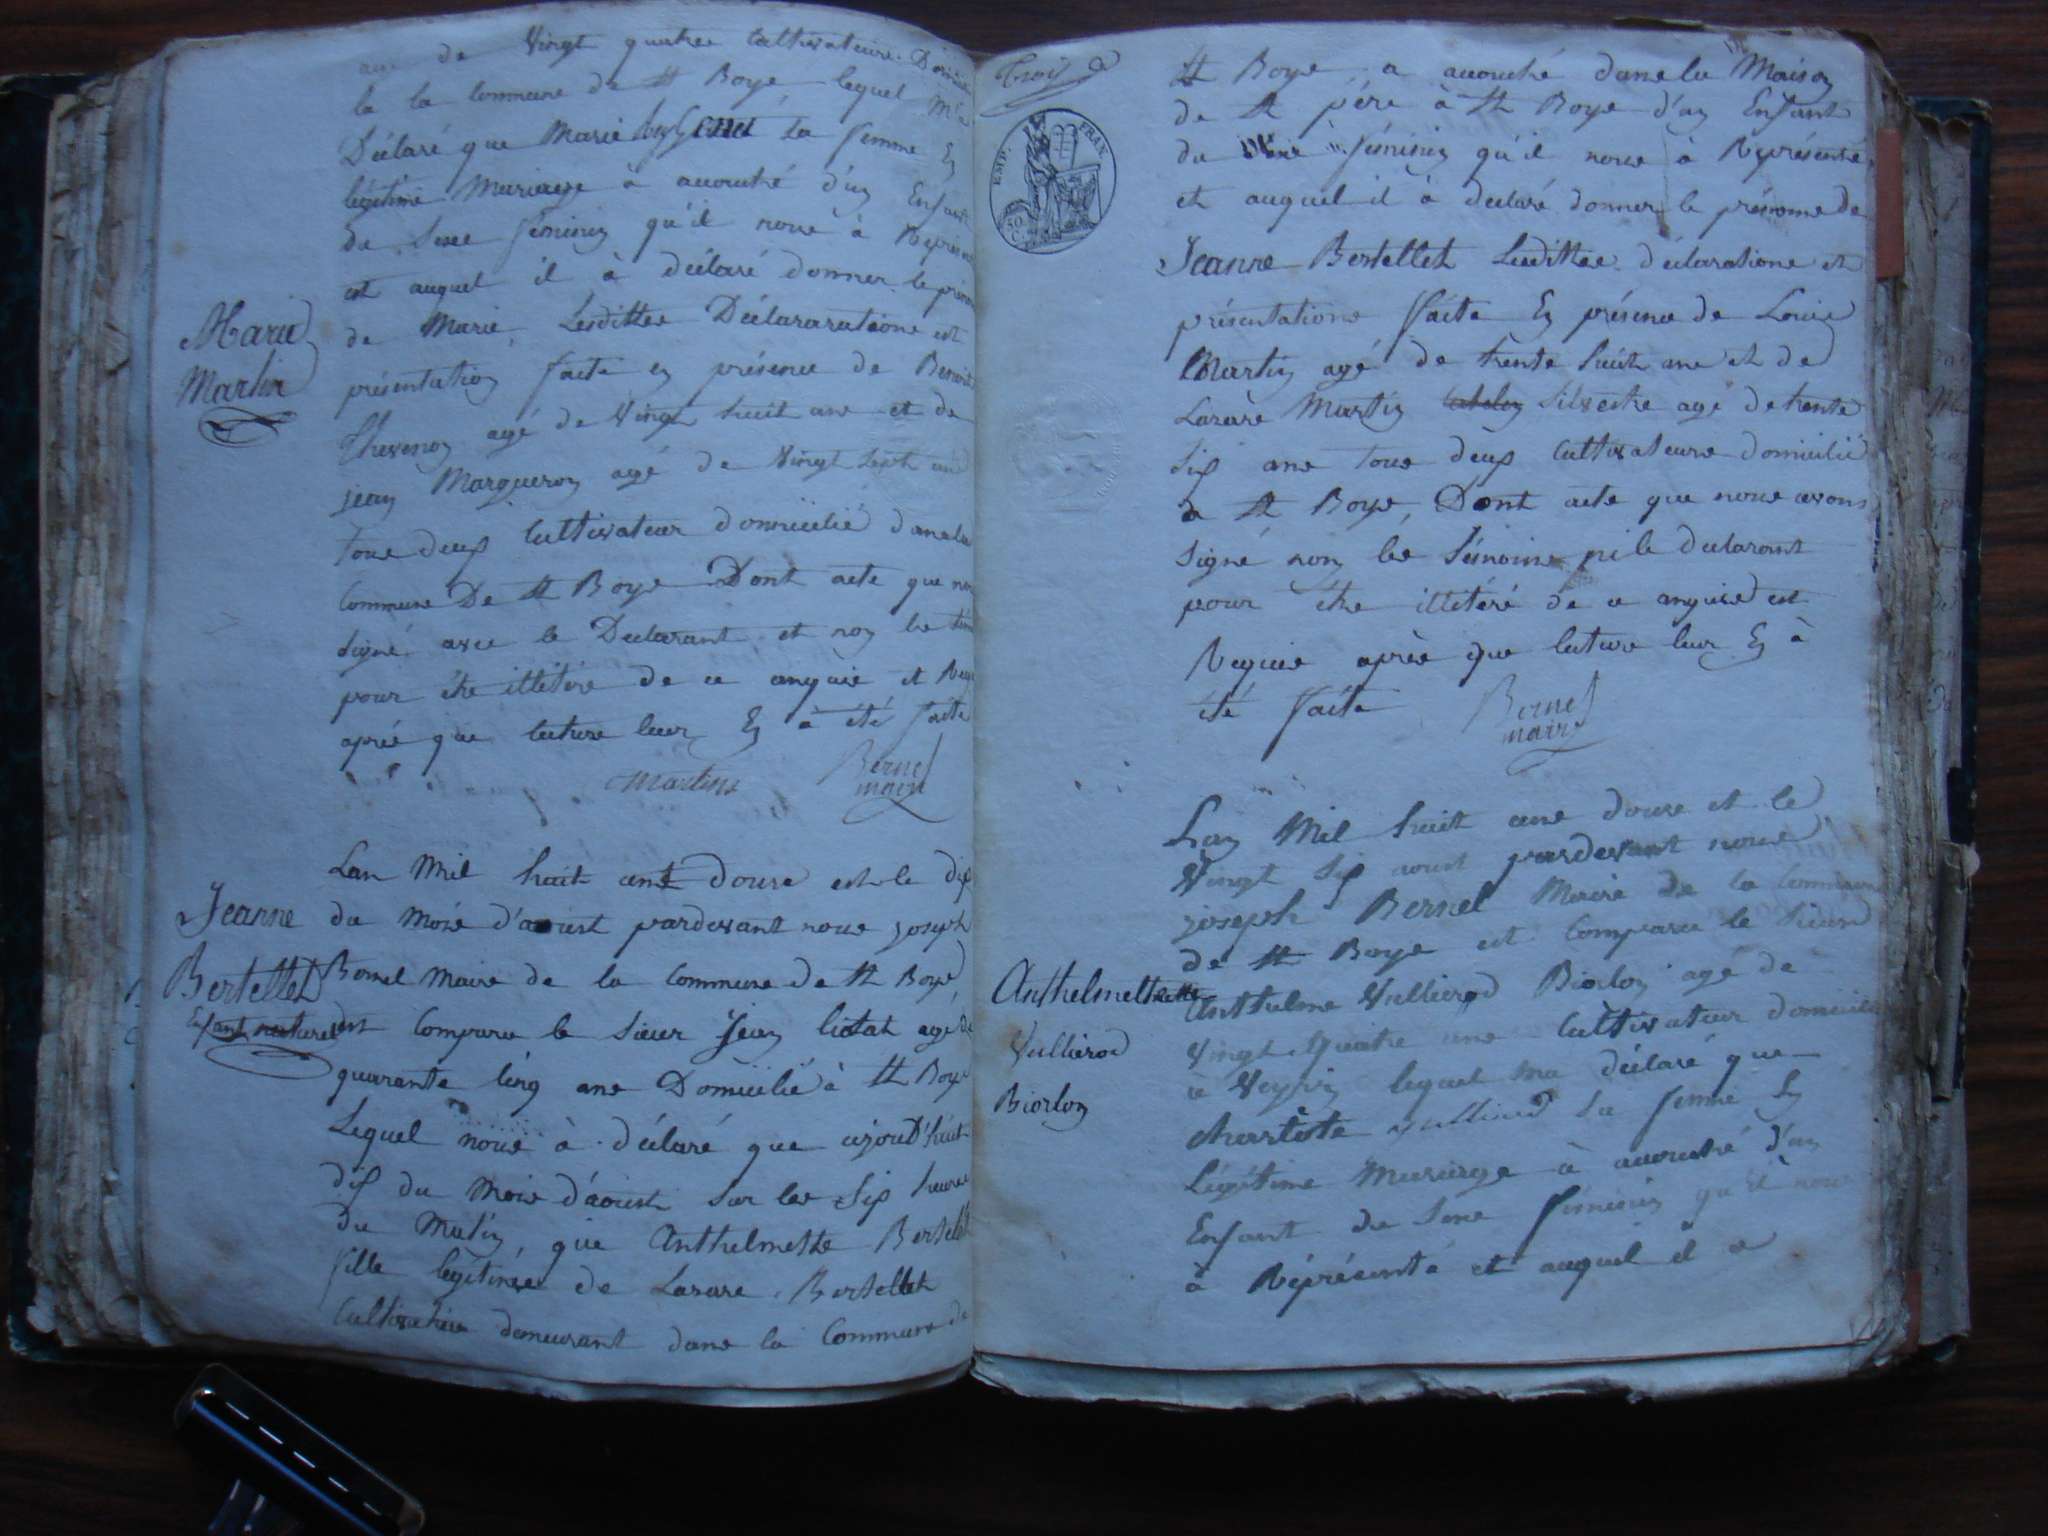 ans de Vingt quatre Cultivateur Domicilié
la la Commune de St Boye, lequel M'a
Déclaré que Marie sa femme En
légitime Mariage à accouché d'un Enfant
de Sexe féminin qu'il nous à Représenté
et auquel il à déclaré donner le prénom
de Marie, Lesdittes Déclararations et
présentation faite en présence de Benoit
Thevenon agé de Vingt huit ans et de
jean Marqueron agé de Vingt Sept ans
tous deux Cultivateur domicilié dans la
Commune De St Boye Dont acte que nous
signé avec le Déclarant et non les
pour être illitéré de ce enquis et Requis
après que lecture leur En à été faite
Martin Bernel
maire
Marie
Martin
Lan Mil huit cent douze est le dix
du Mois d'aoust pardevant nous joseph
Bernel Maire de la Commune de St Boye
est Comparu le Sieur Jean liotat agé de
quarante Cinq ans Domicilié à St Boye
Lequel nous à déclaré que aujourd'huit
dix du Mois d'aoust sur les Six heures
du Matin, que Anthelmette Bertellet
fille légitime de Lazare Bertellet
Cultivateur demeurant dans la Commune de
Jeanne
Bertellet
Enfant naturel
trois
EMP. FRAN.
50 C.
St Boye, a accouché dans la Maison
de St père à St Boye d'un Enfant
du Sexe féminin qu'il nous à Représenté
et auquel il à déclaré donner le prénoms de
Jeanne Bertellet Lesdittes déclarations et
présentations faite En présence de Louis
Martin agé de trente huit ans et de
Lazare Martin Silvestre agé de trente
Six ans tous deux Cultivateurs domicilié
à St Boye, Dont acte que nous avons
Signé non les témoins ni le déclarant
pour être illitéré de ce enquis est
Requis après que lecture leur En à
été faite Bernel
maire
Lan Mil huit cens douze et le
Vingt Six aoust pardevant nous
joseph Bernel Maire de la Commune
de St Boye est Comparu le Sieur
Anthelme Vullierod Biorlon agé de
Vingt Quatre ans Cultivateur domicilié
à Veyrin lequel ma déclaré que
charlote vullierod Sa femme En
Légitime Mariage à accouché d'un
Enfant du Sexe féminin qu'il nous
à Réprésenté et auquel il a
Anthelmette
Vullierod
Biorlon